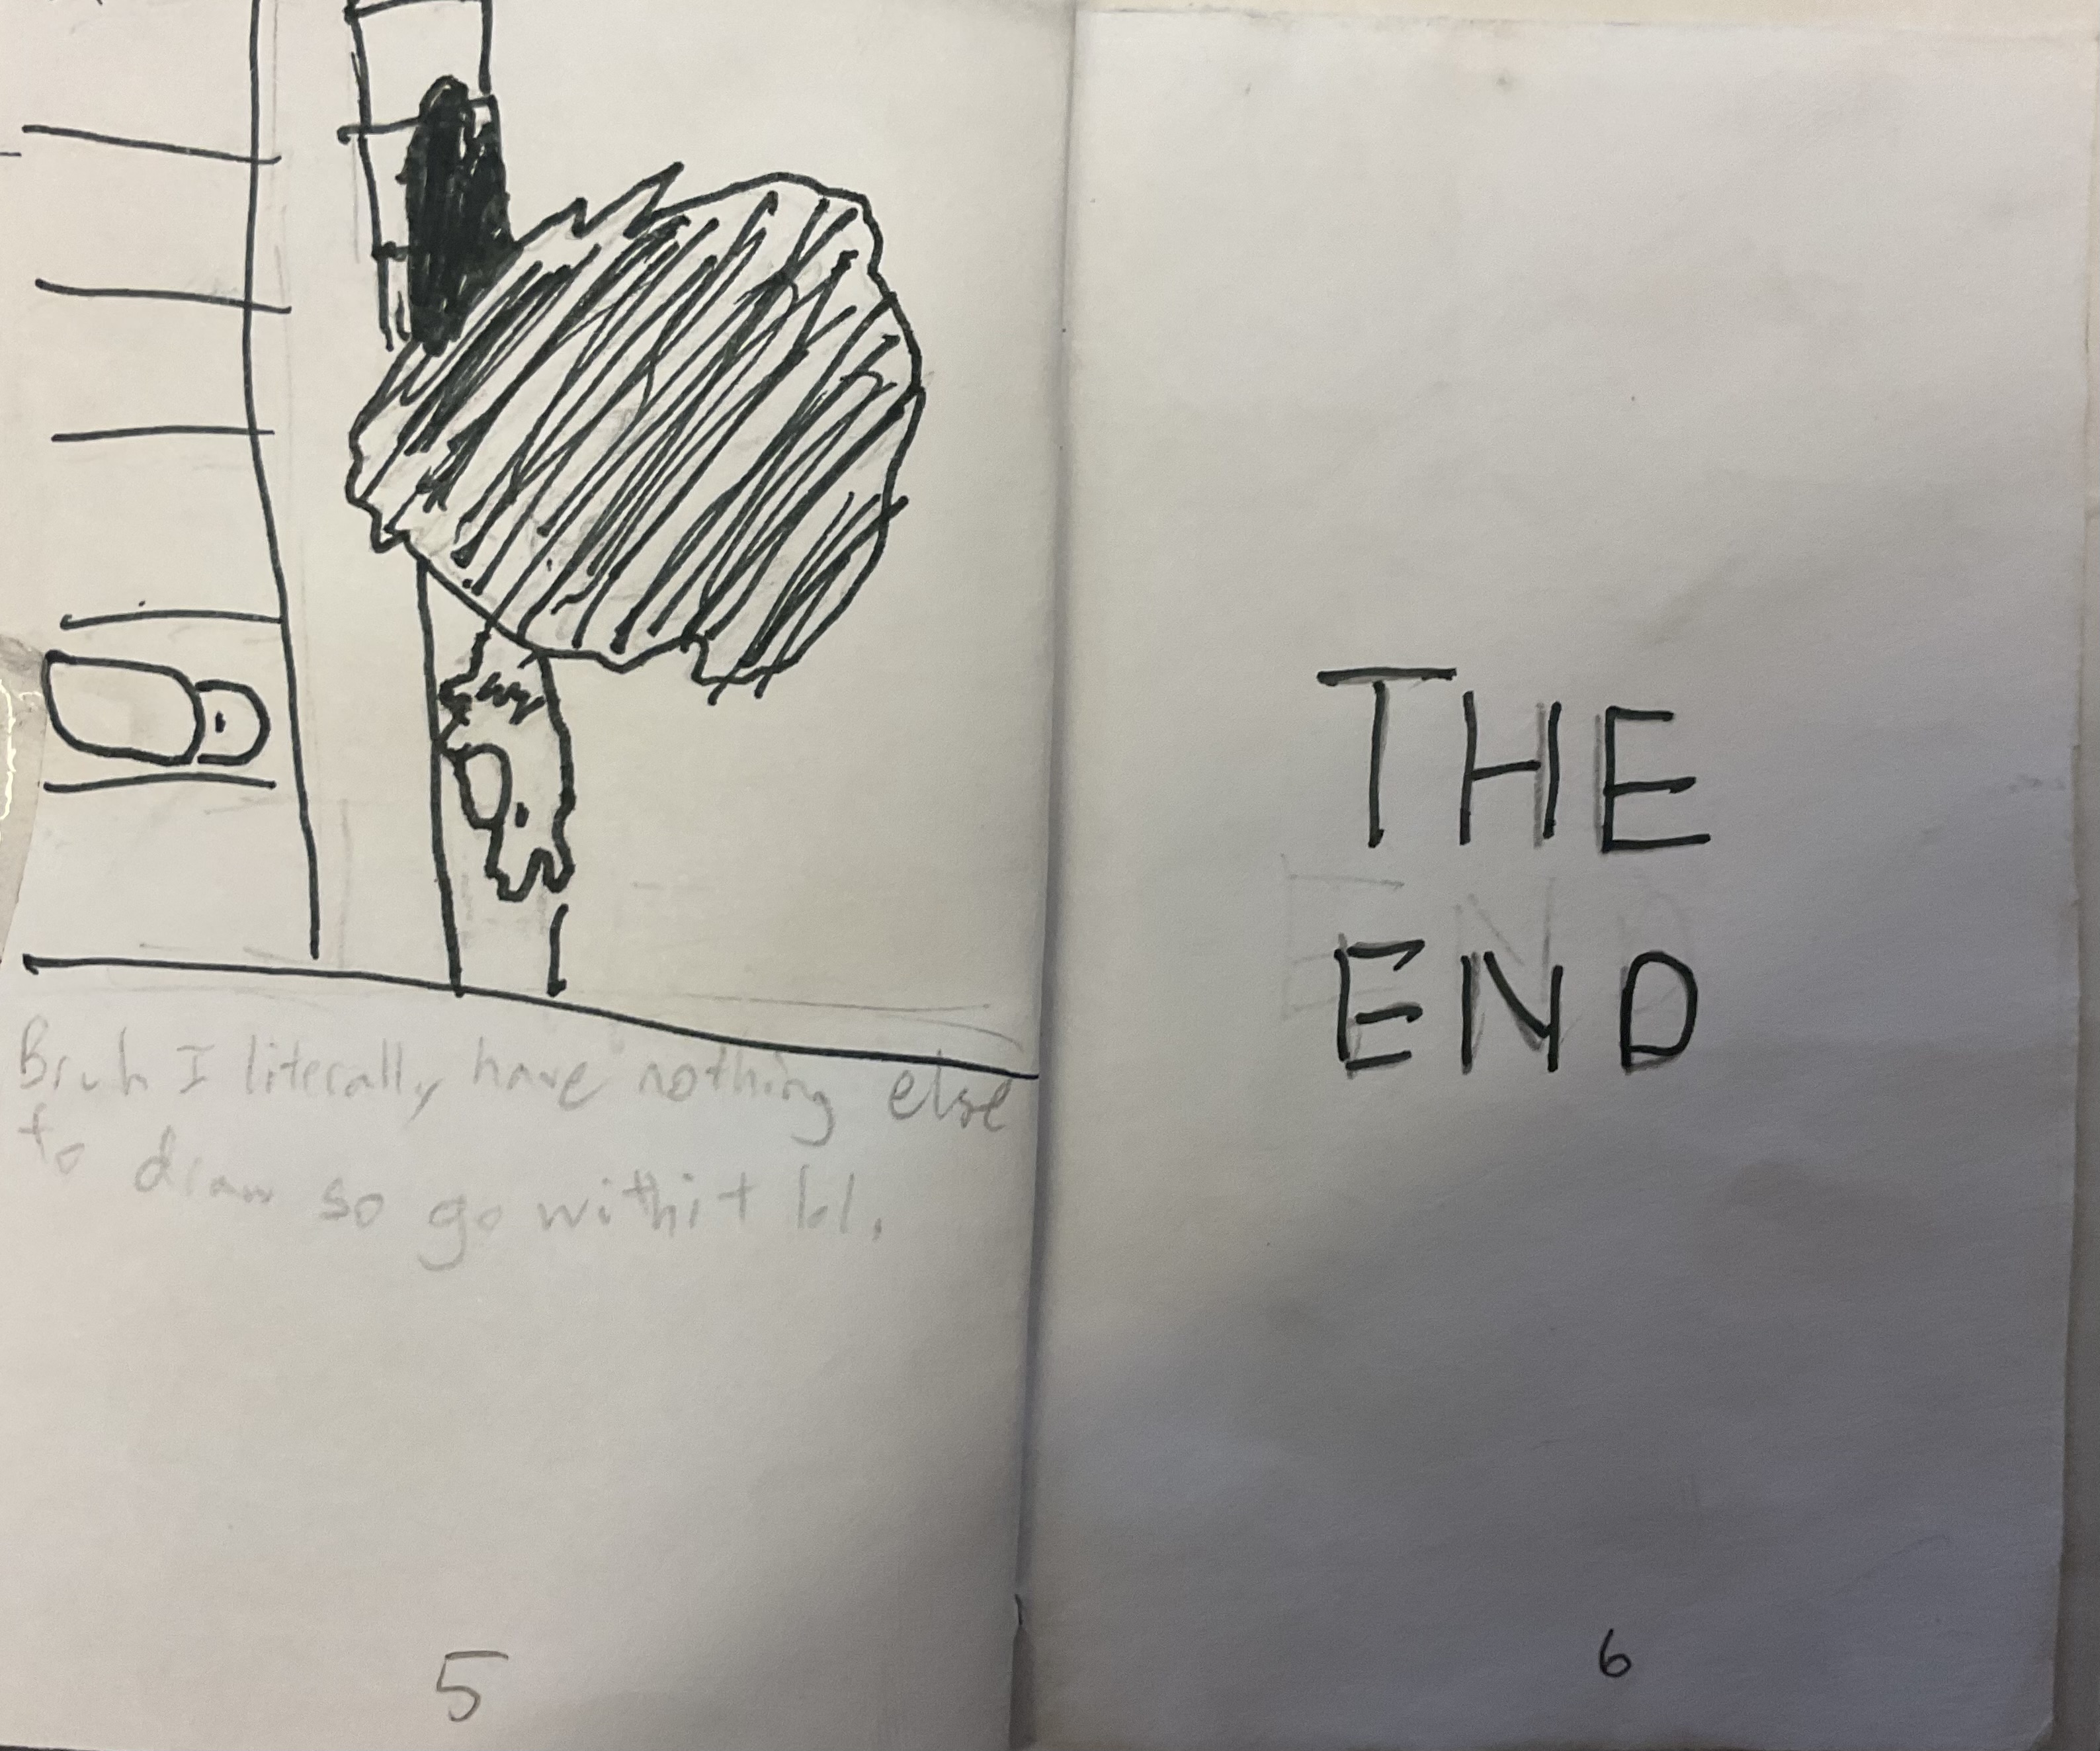 Bruh I literally have nothing else
to draw so go with it lol.
5
THE
END
6